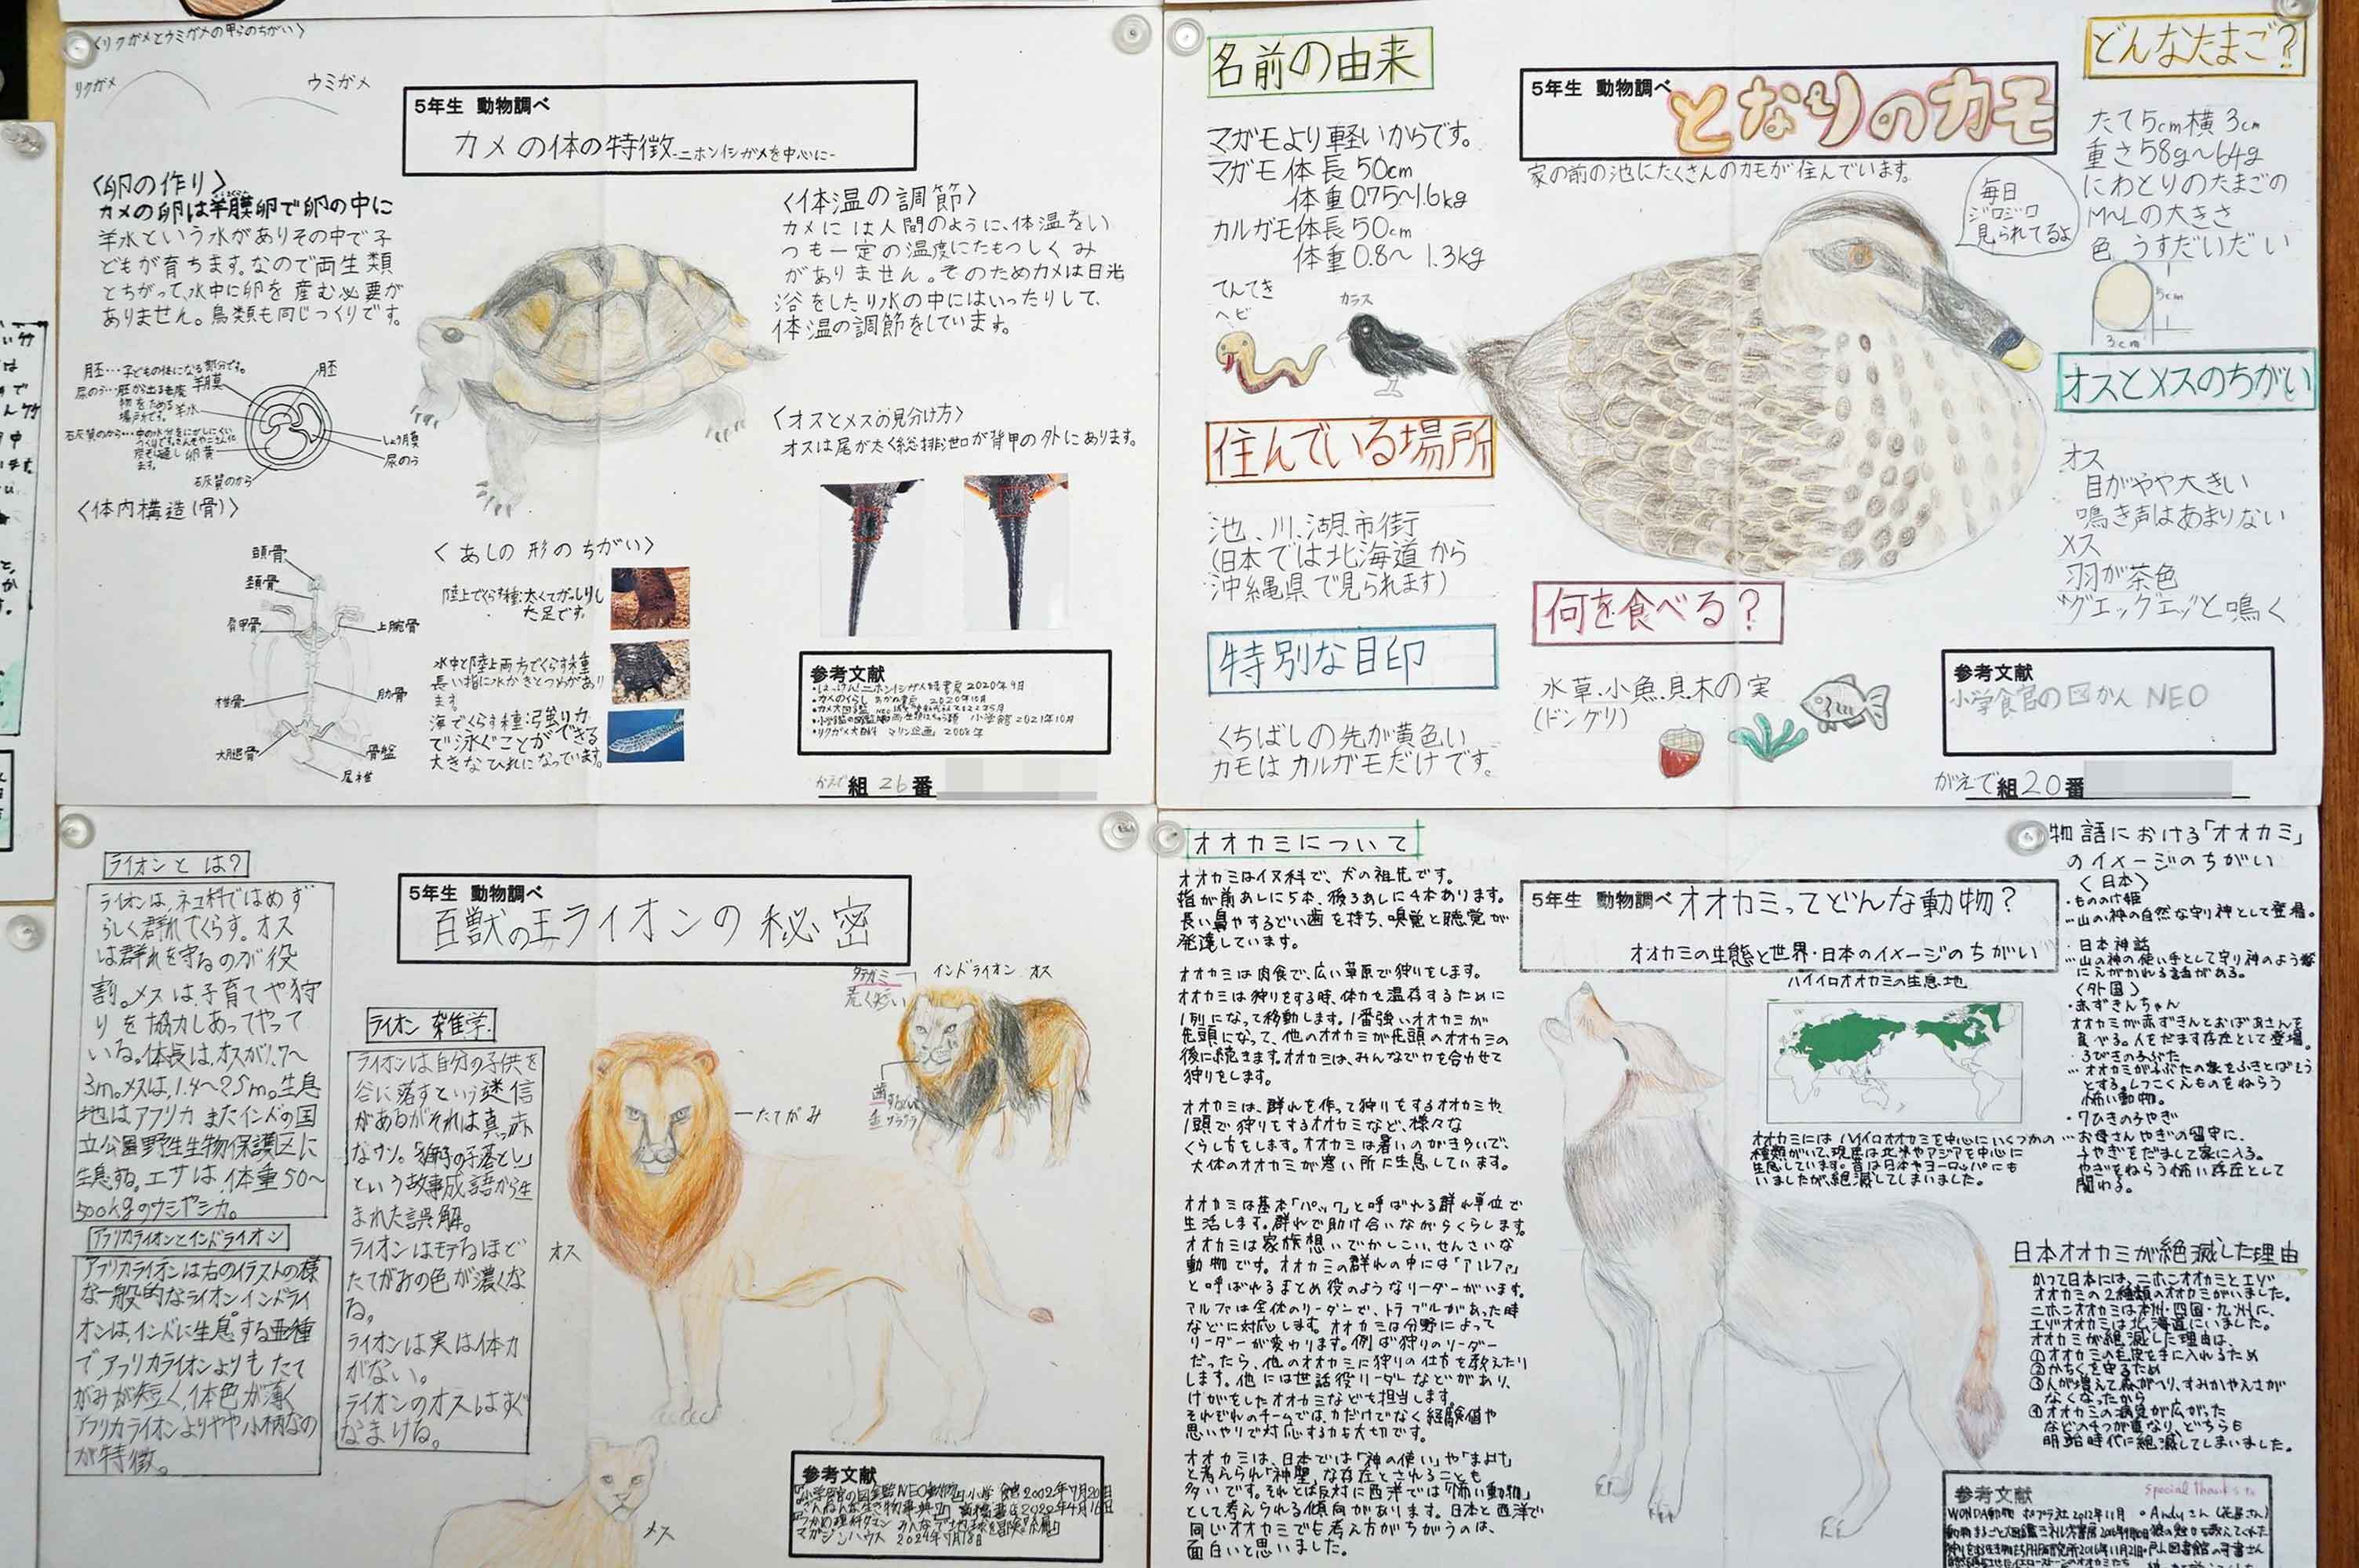 〈リクガメとウミガメの甲らのちがい〉
リクガメ
ウミガメ
5年生 動物調べ
カメの体の特徴-ニホンイシガメを中心に-
〈卵の作り〉
カメの卵は羊膜卵で卵の中に
羊水という水がありその中で子
どもが育ちます。なので両生類
とちがって、水中に卵を産む必要が
ありません。鳥類も同じつくりです。
胚…子どもの体になる部分です。
尿のう…胚から出る老廃
物をためる
場所です。
羊膜
羊水
胚
石灰質のから…中の水分をにがしにくい
卵黄
しょう膜
尿のう
石灰質のから
〈体温の調節〉
カメには人間のように、体温をい
つも一定の温度にたもつしくみ
がありません。そのためカメは日光
浴をしたり水の中にはいったりして、
体温の調節をしています。
〈オスとメスの見分け方〉
オスは尾が太く総排泄口が背甲の外にあります。
〈体内構造(骨)〉
頭骨
頚骨
背甲骨
上腕骨
椎骨
肋骨
大腿骨
骨盤
尾椎
〈あしの形のちがい〉
陸上でくらす種:太くてがっしりし
た足です。
水中と陸上両方でくらす種
長い指に水かきとつめがあり
ます。
海でくらす種:弓強い力
で泳ぐことができる
大きなひれになっています。
参考文献
・カメのくらし あかね書房 2020年10月
・リクガメ大百科 マリン企画 2008年
かえで組26番
名前の由来
マガモより軽いからです。
マガモ体長50cm
体重0.75〜1.6kg
カルガモ体長50cm
体重0.8〜1.3kg
てんてき
ヘビ
カラス
住んでいる場所
池、川、湖、市街
(日本では北海道から
沖縄県で見られます)
特別な目印
くちばしの先が黄色い
カモはカルガモだけです。
5年生 動物調べ
となりのカモ
家の前の池にたくさんのカモが住んでいます。
毎日
ジロジロ
見られてるよ
何を食べる?
水草、小魚、貝、木の実
(ドングリ)
どんなたまご?
たて5cm横3cm
重さ58g〜64g
にわとりのたまごの
M〜Lの大きさ
色 うすだいだい
5cm
3cm
オスとメスのちがい
オス
目がやや大きい
鳴き声はあまりない
メス
羽が茶色
"グエッグエッ"と鳴く
参考文献
小学食官の図かん NEO
かえで組20番
ライオンとは?
ライオンは、ネコ科ではめず
らしく群れでくらす。オス
は群れを守るのが役
割。メスは、子育てや狩
りを協力しあってやって
いる。体長は、オスが1.7〜
3m。メスは、1.4〜2.5m。生息
地はアフリカまたインドの国
立公園野生生物保護区に
生息する。エサは、体重50〜
500kgのウシやシカ。
アフリカライオンとインドライオン
アフリカライオンは右のイラストの様
な一般的なライオン。インドライ
オンは、インドに生息する亜種
でアフリカライオンよりもたて
がみが短く、体色が薄く
アフリカライオンよりやや小柄なの
が特徴。
5年生 動物調べ
百獣の王ライオンの秘密
ライオン雑学
ライオンは自分の子供を
谷に落すという迷信
があるがそれは真っ赤
なウソ。「獅子の子落とし」
という故事成語から生
まれた誤解。
ライオンはモテるほど
たてがみの色が濃くな
る。
ライオンは実は体力
がない。
ライオンのオスはすぐ
なまける。
タテガミ
荒く短い
インドライオン オス
たてがみ
オス
メス
参考文献
マガジンハウス 2024年9月18日
オオカミについて
オオカミはイヌ科で、犬の祖先です。
指が前あしに5本、後ろあしに4本あります。
長い鼻やするどい歯を持ち、嗅覚と聴覚が
発達しています。
オオカミは肉食で、広い草原で狩りをします。
オオカミは狩りをする時、体力を温存するために
1列になって移動します。1番強いオオカミが
先頭になって、他のオオカミが先頭のオオカミの
後に続きます。オオカミは、みんなで力を合わせて
狩りをします。
オオカミは、群れを作って狩りをするオオカミや、
1頭で狩りをするオオカミなど、様々な
くらし方をします。オオカミは暑いのがきらいで、
大体のオオカミが寒い所に生息しています。
オオカミは基本「パック」と呼ばれる群れ単位で
生活します。群れで助け合いながらくらします。
オオカミは家族想いでかしこい、せんさいな
動物です。オオカミの群れの中には「アルファ」
と呼ばれるまとめ役のようなリーダーがいます。
アルファは全体のリーダーで、トラブルがあった時
などに対応します。オオカミは分野によって
リーダーが変わります。例えば狩りのリーダー
だったら、他のオオカミに狩りの仕方を教えたり
します。他には世話役リーダーなどがあり、
けがをしたオオカミなども担当します。
それぞれのチームでは、力だけでなく経験値や
思いやりで対応する力も大切です。
オオカミは、日本では「神の使い」や「まよけ」
と考えられ「神聖」な存在とされることも
多いです。それとは反対に西洋では「怖い動物」
として考えられる傾向があります。日本と西洋で
同じオオカミでも考え方がちがうのは、
面白いと思いました。
5年生 動物調べ
オオカミってどんな動物?
オオカミの生態と世界・日本のイメージのちがい
ハイイロオオカミの生息地
オオカミにはハイイロオオカミを中心にいくつかの
種類がいて、現在は北米やアジアを中心に
生息しています。昔は日本やヨーロッパにも
いましたが、絶滅してしまいました。
物語における「オオカミ」
のイメージのちがい
〈日本〉
・もののけ姫
…山の神の自然な守り神として登場。
・日本神話
…山の神の使い手として守り神のよう
にえがかれる話がある。
〈外国〉
・赤ずきんちゃん
オオカミが赤ずきんとおばあさんを
食べる。人をだます存在として登場。
・3びきの子ぶた
…オオカミが子ぶたの家をふきとばそう
とする。しつこくえものをねらう
怖い動物。
・7ひきの子やぎ
…お母さんやぎの留守に、
子やぎをだまして家に入る。
やぎをねらう怖い存在として
関わる。
日本オオカミが絶滅した理由
かつて日本には、ニホンオオカミとエゾ
オオカミの2種類のオオカミがいました。
ニホンオオカミは本州・四国・九州に、
エゾオオカミは北海道にいました。
オオカミが絶滅した理由は、
①オオカミの毛皮を手に入れるため
②かちくを守るため
③人が増えて森がへり、すみかやえさが
なくなったから
④オオカミの病気が広がった
などの4つが重なり、どちらも
明治時代に絶滅してしまいました。
参考文献
Special thanks to
WONDA動物 ポプラ社 2012年11月